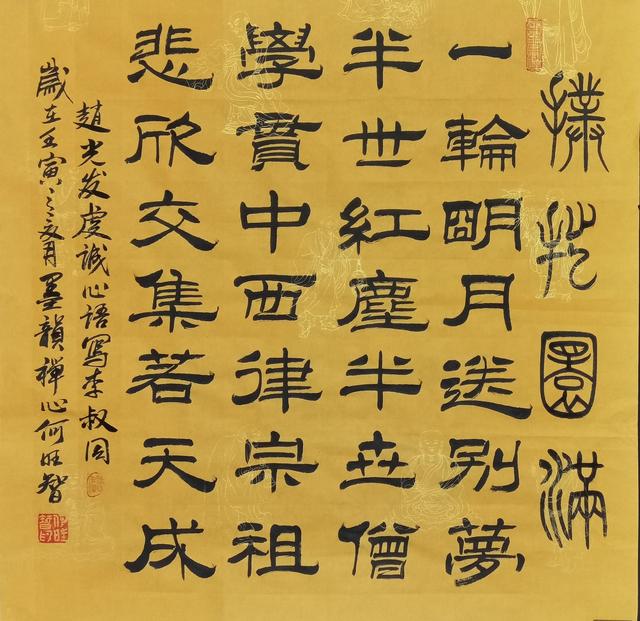 圓滿
一輪朙月送别夢
半世紅塵半世僧
學貫中西律宗祖
悲欣交集若天成
趙光发虔誠心語寫李叔同
歲在壬寅之亥月墨韻禪心何旺智